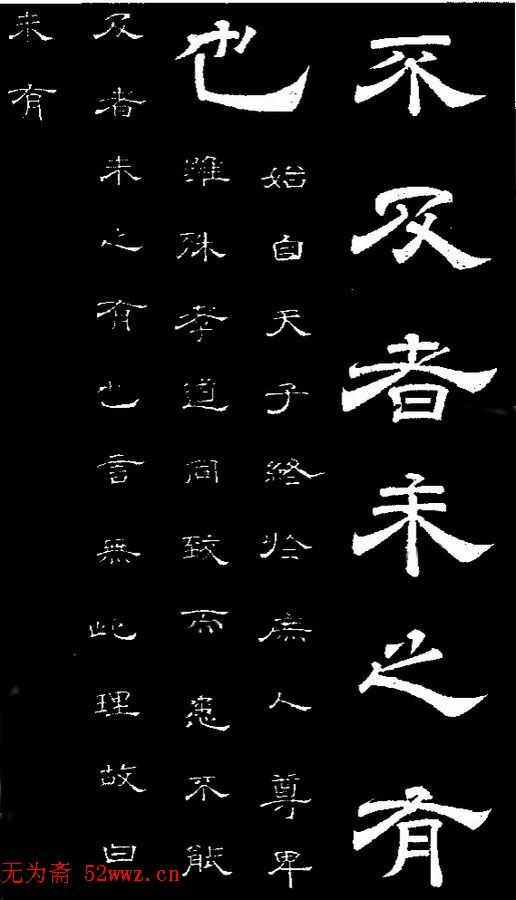 不及者未之有
也
始自天子終於庶人尊卑
雖殊孝道同致而患不能
及者未之有也言無此理故曰
未有
无为斋 52wwz.cn